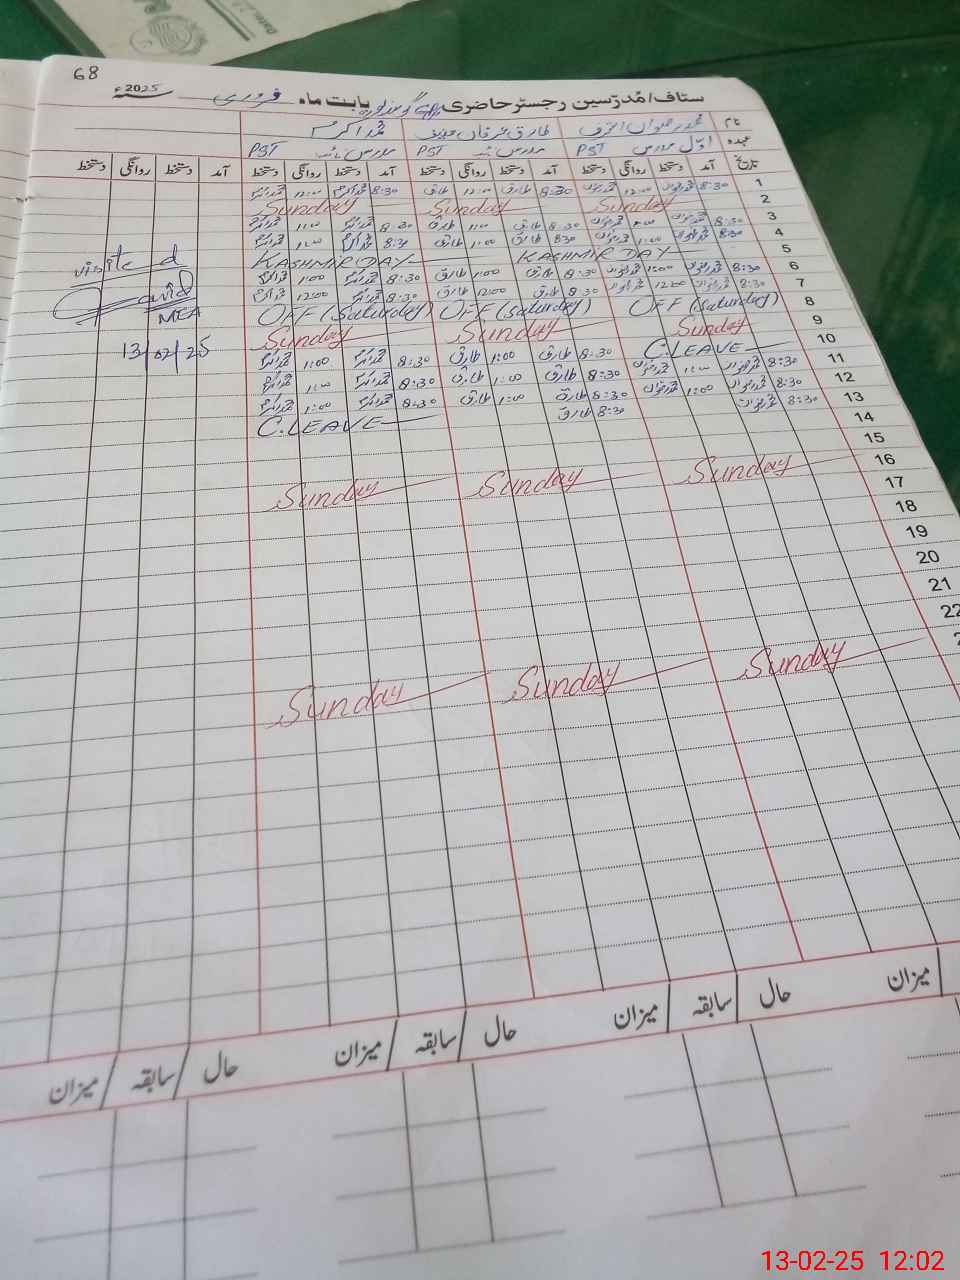 68
ستاف/مُدرّسین رجسٹر حاضری بابت ماہ فروری 2025ء
نام محمد رضوان اشرف طارق عرفان محمد اکرم
عہدہ اوّل مدرس PST مدرس نائب PST مدرس نائب PST
تاریخ آمد دستخط روانگی دستخط آمد دستخط روانگی دستخط آمد دستخط روانگی دستخط آمد دستخط روانگی دستخط
1 8:30 12:00 8:30 طارق 12:00 طارق 8:30 محمد اکرم 12:00 محمد اکرم
2 Sunday Sunday Sunday
3 8:30 8:30 طارق 1:00 طارق 8:30 محمد اکرم محمد اکرم
4 8:30 1:00 8:30 طارق 1:00 طارق 8:30 محمد اکرم محمد اکرم
5 KASHMIR DAY KASHMIR DAY
6 8:30 1:00 8:30 طارق 1:00 طارق 8:30 محمد اکرم 1:00 محمد اکرم
7 8:30 12:00 8:30 طارق 12:00 طارق 8:30 محمد اکرم 12:00 محمد اکرم
8 OFF (Saturday) OFF (Saturday) OFF (Saturday)
9 Sunday Sunday Sunday
10 C.LEAVE 8:30 طارق 1:00 طارق 8:30 محمد اکرم 1:00 محمد اکرم
11 8:30 8:30 طارق 1:00 طارق 8:30 محمد اکرم محمد اکرم
12 8:30 1:00 8:30 طارق 1:00 طارق 8:30 محمد اکرم 1:00 محمد اکرم
13 8:30 8:30 طارق C.LEAVE
14
15
16 Sunday Sunday Sunday
17
18
19
20
21
22
Sunday Sunday Sunday
visited
MEA
13/02/25
میزان حال سابقہ میزان حال سابقہ میزان حال سابقہ میزان
13-02-25 12:02